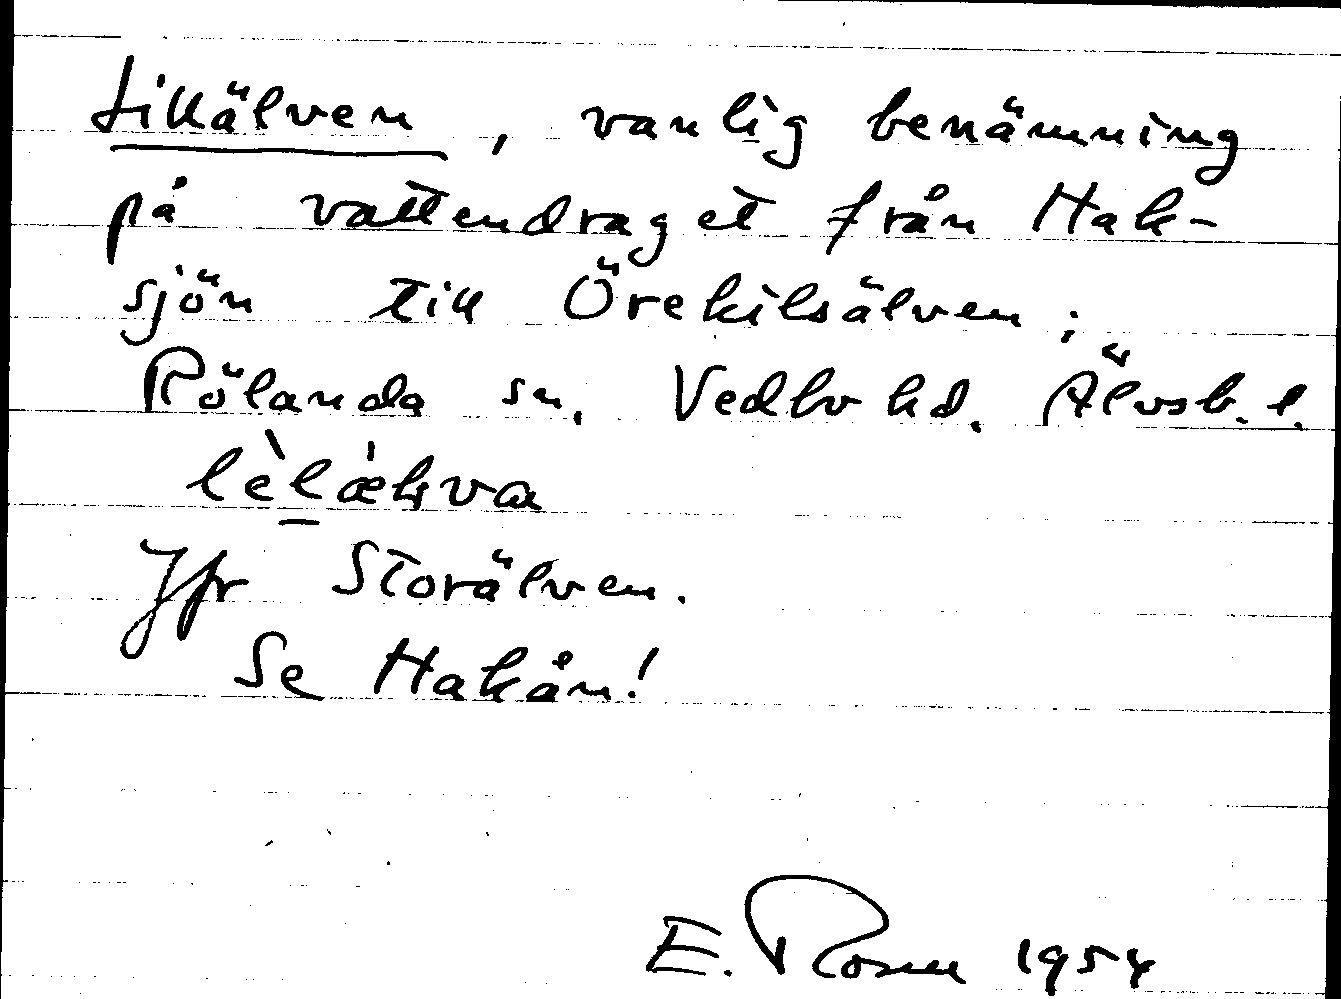 Lillälven, vanlig benämning
på vattendraget från Hak-
sjön till Örekilsälven;
Rölanda sn, Vedbo hd. Älvsb. l.
lèlækva
Jfr Storälven.
Se Hakån!
E. Rosen 1954